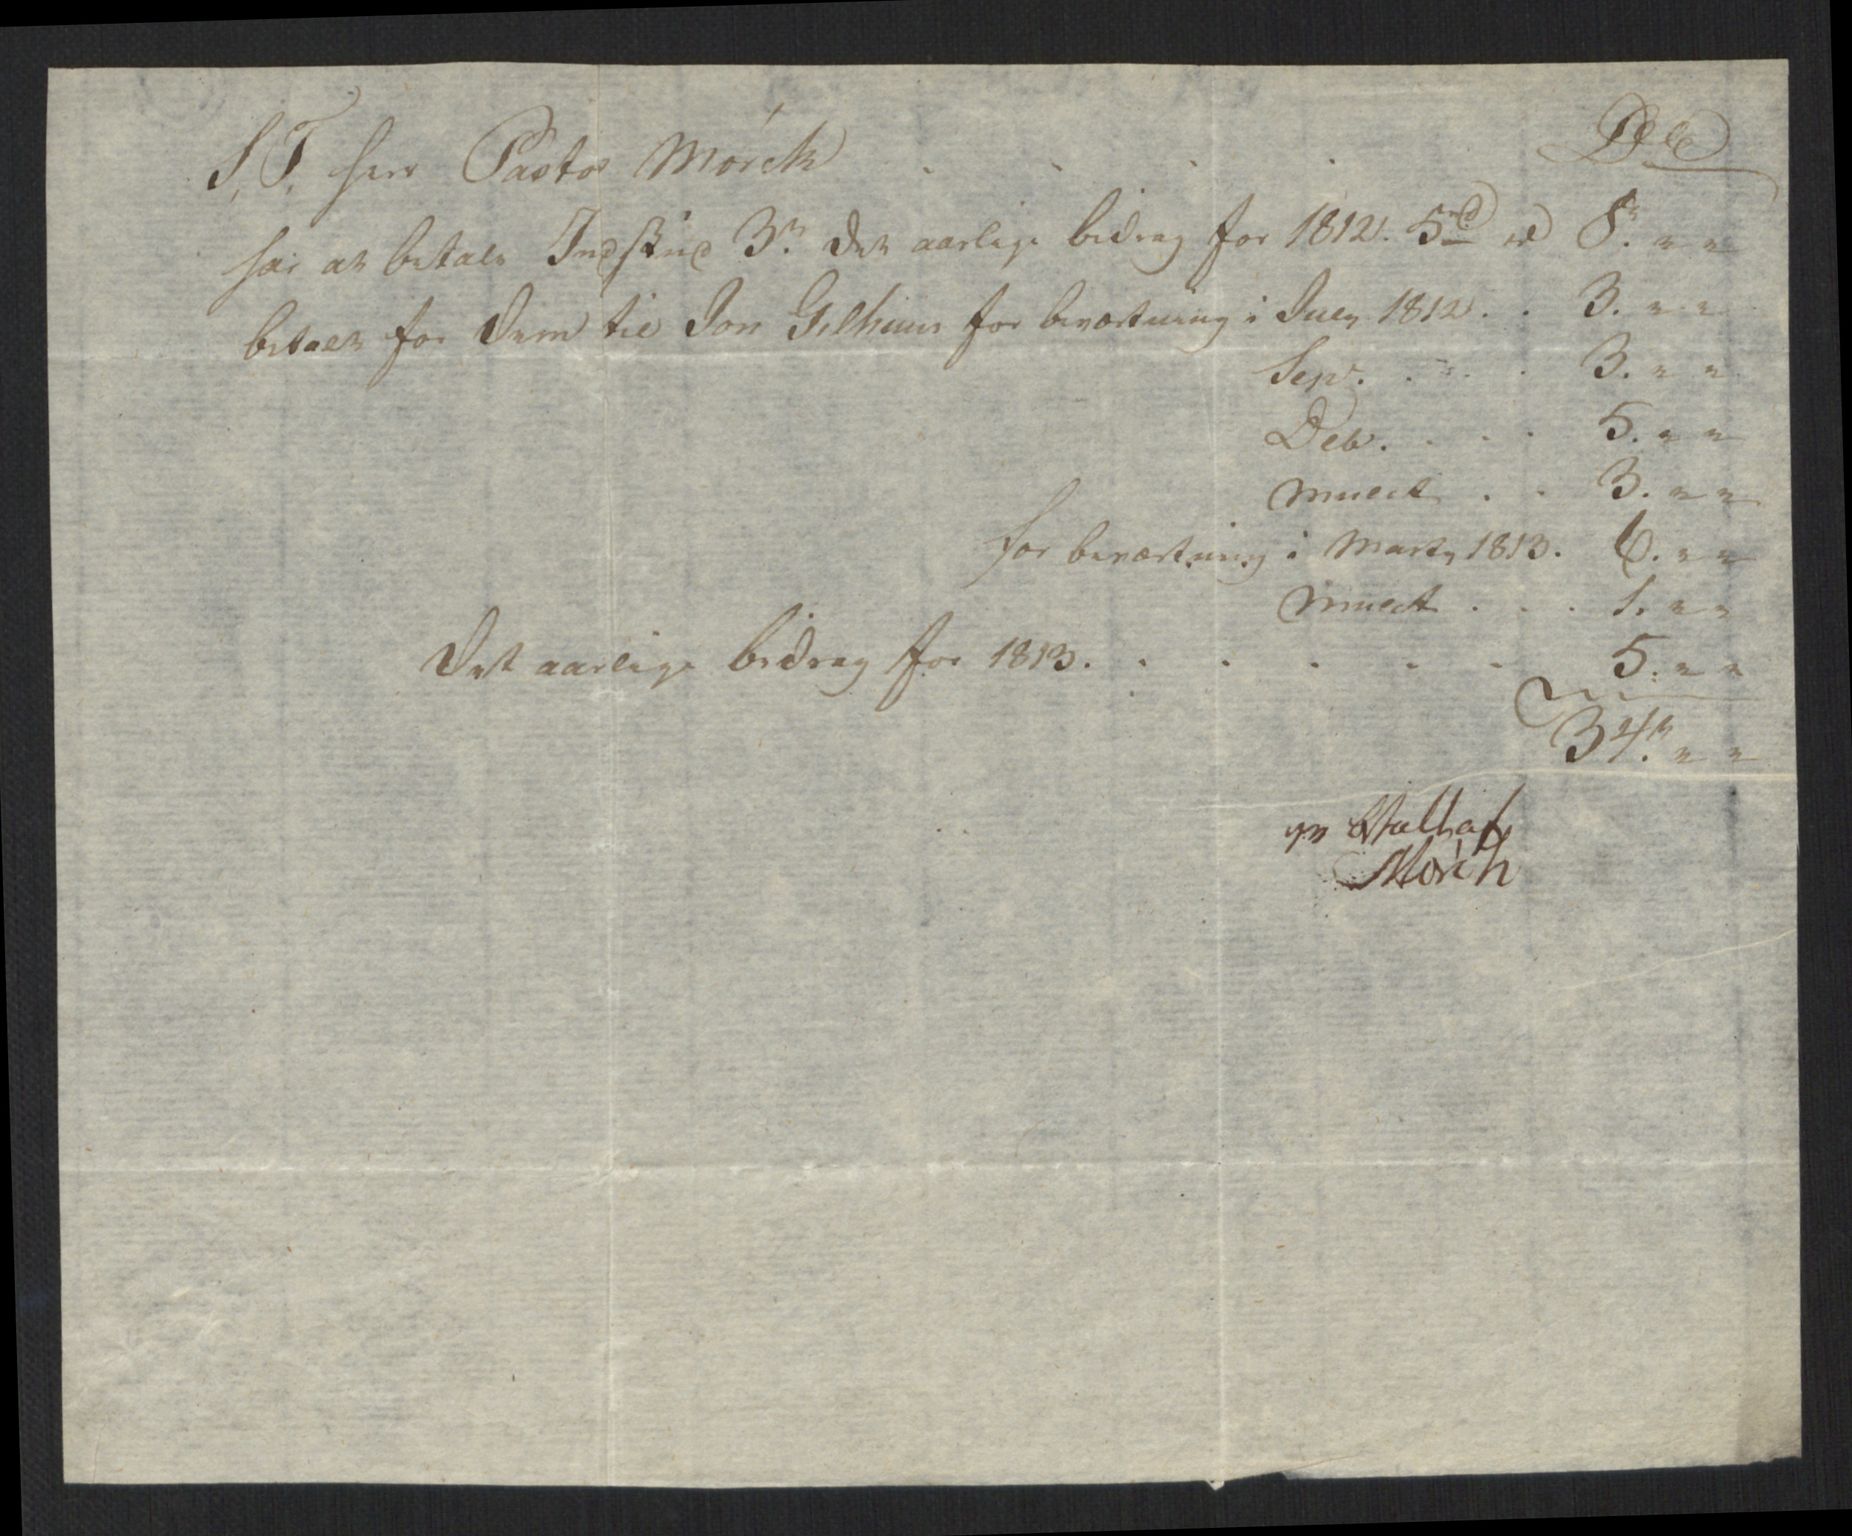 S. T. Herr Pastor Mörch . . . . Dlr
har at betale Indskud 3r. det aarlige bidrag for 1812. 5rd er 8r. " "
betalt for Dem til Jon Gilhuus for bevertning i July 1812 . . 3. " "
Sepr. . . . 3. " "
Debr. . . . 5. " "
Mulct . . 3. " "
for bevertning i Marty 1813. 6. " "
Mulct . . . 1. " "
Det aarlige bidrag for 1813. . . . . . 5. " "
34r. " "
Mörch